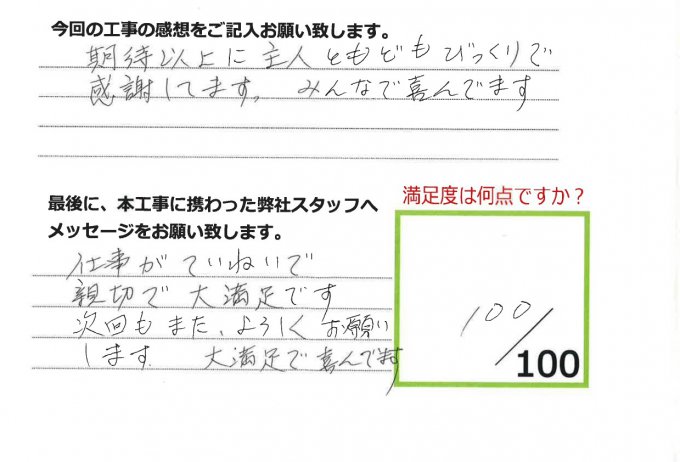 今回の工事の感想をご記入お願い致します。
期待以上に主人ともどもびっくりで
感謝してます。 みんなで喜んでます
最後に、本工事に携わった弊社スタッフへ
メッセージをお願い致します。
仕事がていねいで
親切で大満足です
次回もまた、よろしくお願い
します 大満足で喜んでます
満足度は何点ですか？
100/100